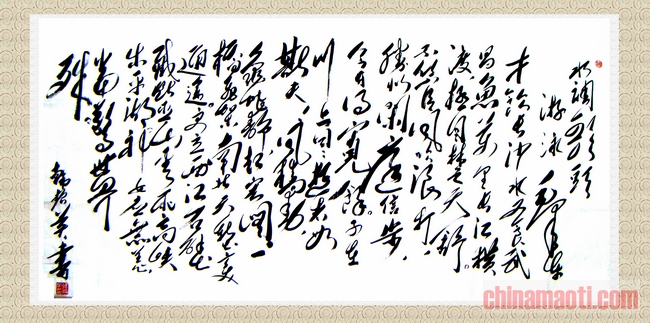 水调歌头
游泳 毛泽东
才饮长沙水又食武
昌魚萬里长江横
渡极目楚天舒
不管風吹浪打
胜似闲庭信步
今日得寬餘子在
川上曰逝者如
斯夫風樯動
龟蛇静起宏图一
橋飛架南北天堑变
通途更立西江石壁
截断巫山雲雨高峡
出平湖神女应無恙
當驚世界
殊
chinamaoti.com